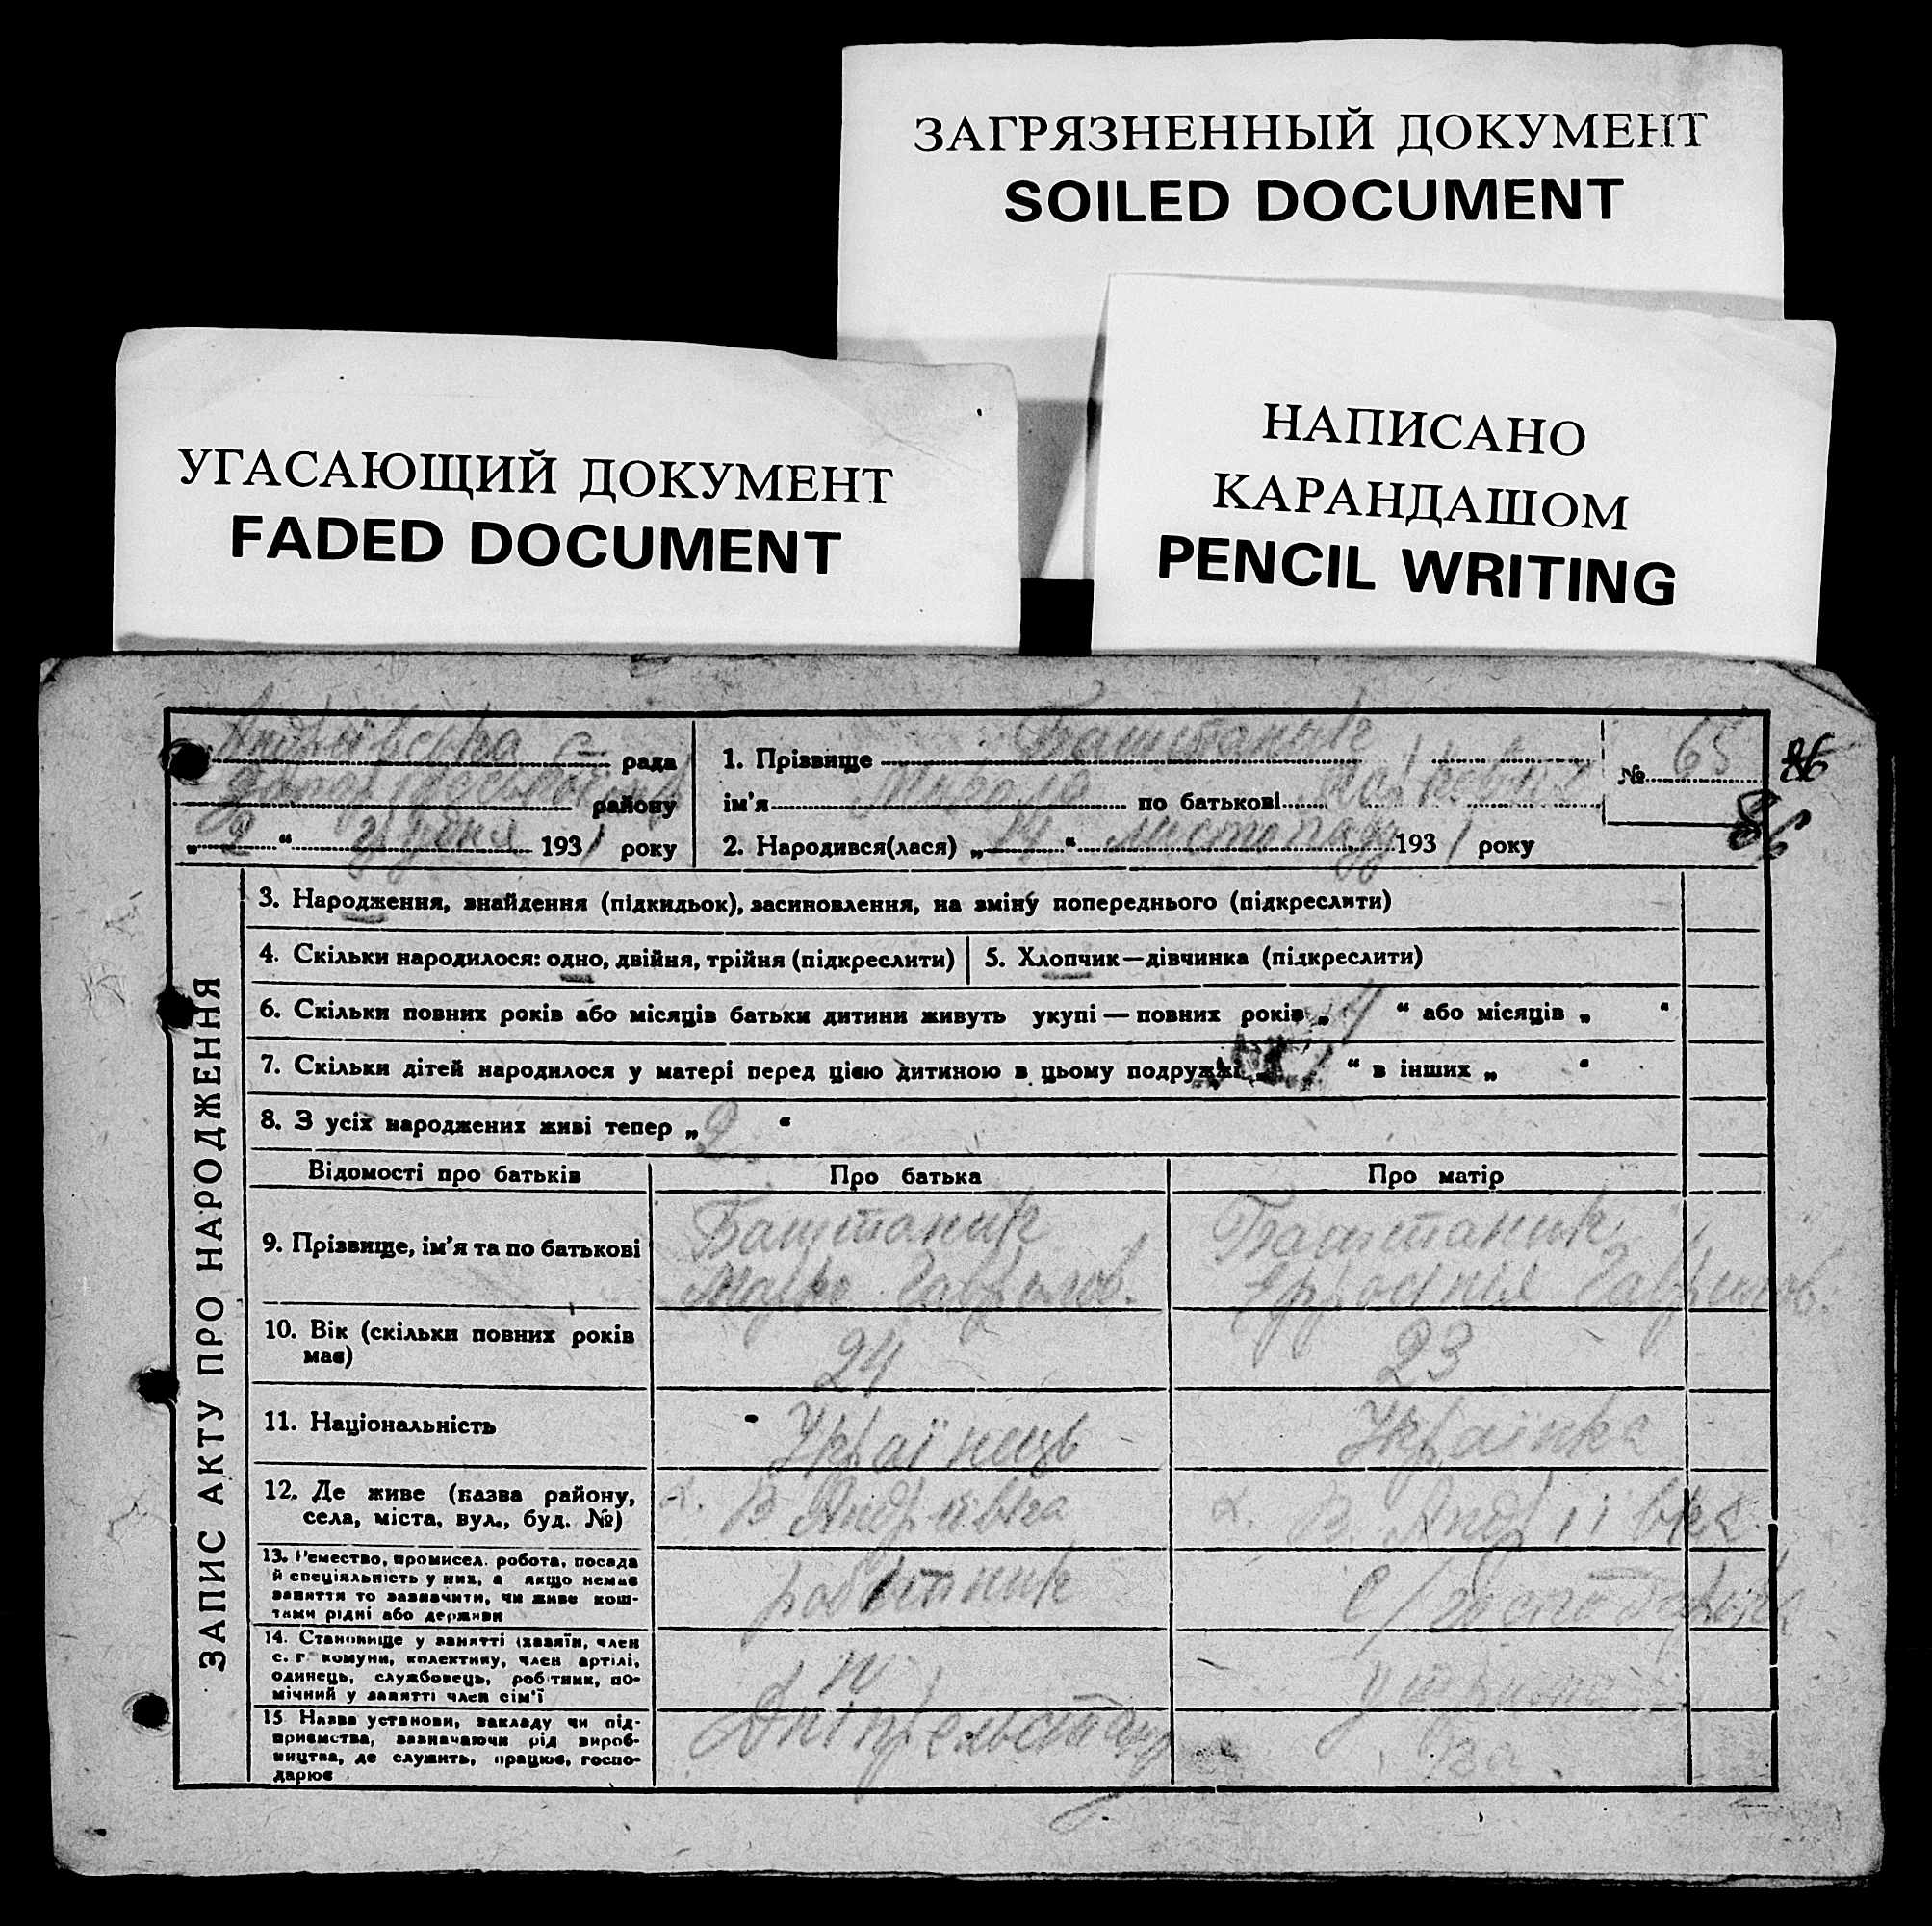 ЗАГРЯЗНЕННЫЙ ДОКУМЕНТ
SOILED DOCUMENT
НАПИСАНО
КАРАНДАШОМ
PENCIL WRITING
УГАСАЮЩИЙ ДОКУМЕНТ
FADED DOCUMENT
Андріївська с рада
району
„2“ грудня 1931 року
1. Прізвище Баштаник
ім'я Микола по батькові
2. Народився(лася) „14“ листопаду 1931 року
№ 65
86
86
ЗАПИС АКТУ ПРО НАРОДЖЕННЯ
3. Народження, знайдення (підкидьок), засиновлення, на зміну попереднього (підкреслити)
4. Скільки народилося: одно, двійня, трійня (підкреслити)
5. Хлопчик—дівчинка (підкреслити)
6. Скільки повних років або місяців батьки дитини живуть укупі — повних років „4“ або місяців „ “
7. Скільки дітей народилося у матері перед цією дитиною в цьому подружжі „1“ в інших „ “
8. З усіх народжених живі тепер „2“
Відомості про батьків Про батька Про матір
9. Прізвище, ім'я та по батькові
Баштаник
Марко Гаврилов.
Баштаник
Єфросинія Гаврилов.
10. Вік (скільки повних років
має)
24
23
11. Національність
Українець
Українка
12. Де живе (назва району,
села, міста, вул., буд. №)
х. В Андріївка
х. В. Андріївка
13. Ремество, промисел, робота, посада
й спеціяльність у них, а якщо немає
заняття то зазначити, чи живе кош-
тами рідні або держави
робітник
С/господарка
14. Становище у занятті (хазяїн, член
с. г. комуни, колективу, член артілі,
одинець, службовець, робітник, по-
мічний у занятті член сім'ї
15 Назва установи, закладу чи під-
приємства, зазначаючи рід вироб-
ництва, де служить, працює, госпо-
дарює
Дніпрельстану